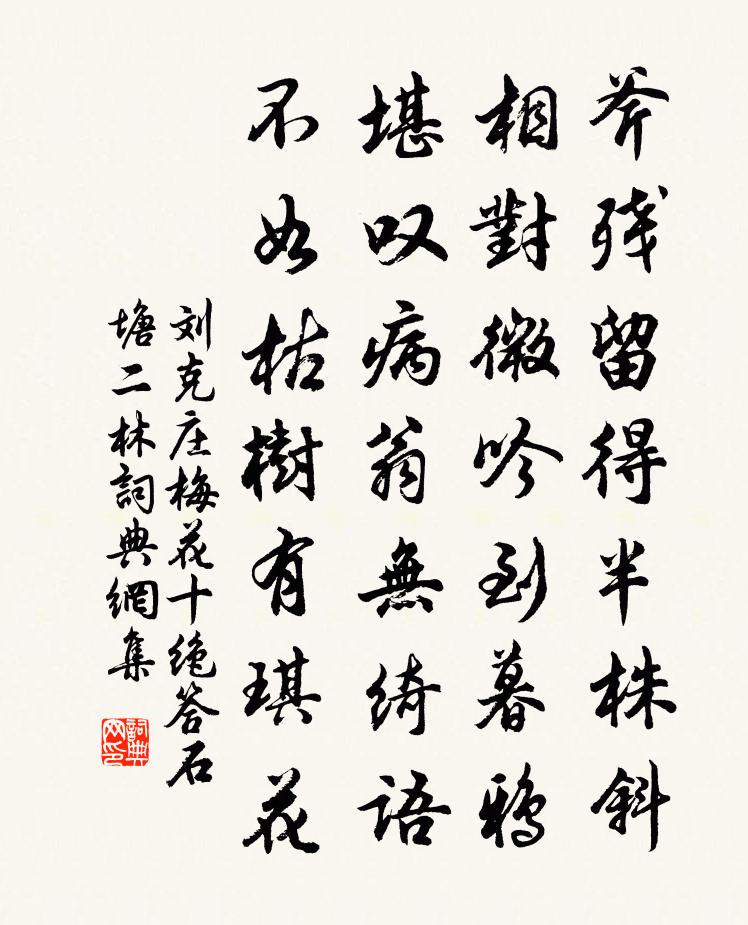 斧残留得半株斜
相對微吟到暮鴉
堪叹病翁無綺語
不如枯樹有琪花
刘克庄梅花十绝答石
塘二林詞典網集
詞典网印